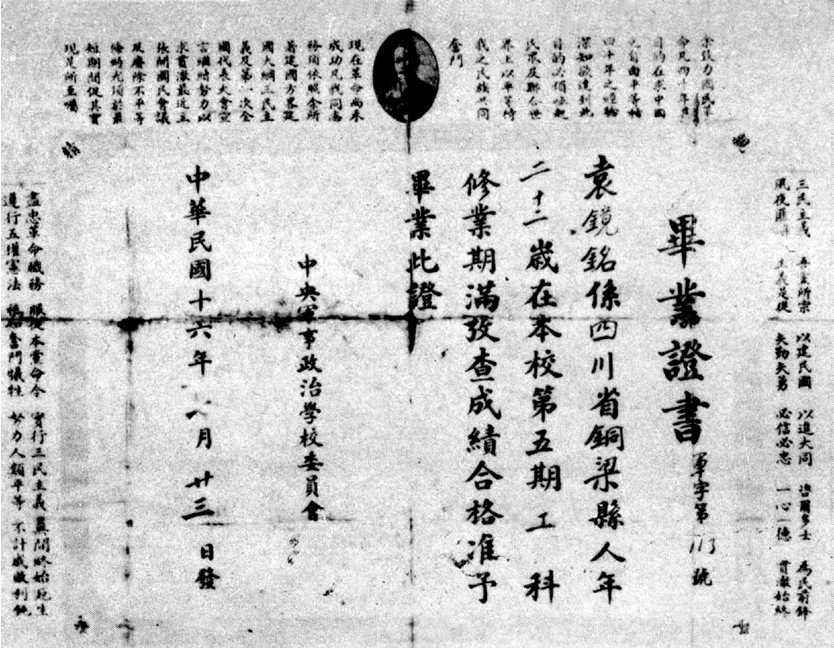 余致力國民革
命凡四十年其
目的在求中國
之自由平等積
四十年之經驗
深知欲達到此
目的必須喚起
民眾及聯合世
界上以平等待
我之民族共同
奮鬥
現在革命尚未
成功凡我同志
務須依照余所
著建國方畧建
國大綱三民主
義及第一次全
國代表大會宣
言繼續努力以
求貫澈最近主
張開國民會議
及廢除不平等
條約尤須於最
短期間促其實
現是所至囑
三民主義 吾黨所宗 以建民國 以進大同 咨爾多士 為民前鋒
夙夜匪 主義是從 矢勤矢勇 必信必忠 一心一德 貫澈始終
畢業證書
軍字第113號
袁鏡銘係四川省銅梁縣人年
二十二歲在本校第五期工科
修業期滿攷查成績合格准予
畢業此證
中央軍事政治學校委員會
中華民國十六年八月廿三日發
盡忠革命職務 服從本黨命令 實行三民主義 無間終始死生
遵行五權憲法 奮鬥犧牲 努力人類平等 不計成敗利鈍